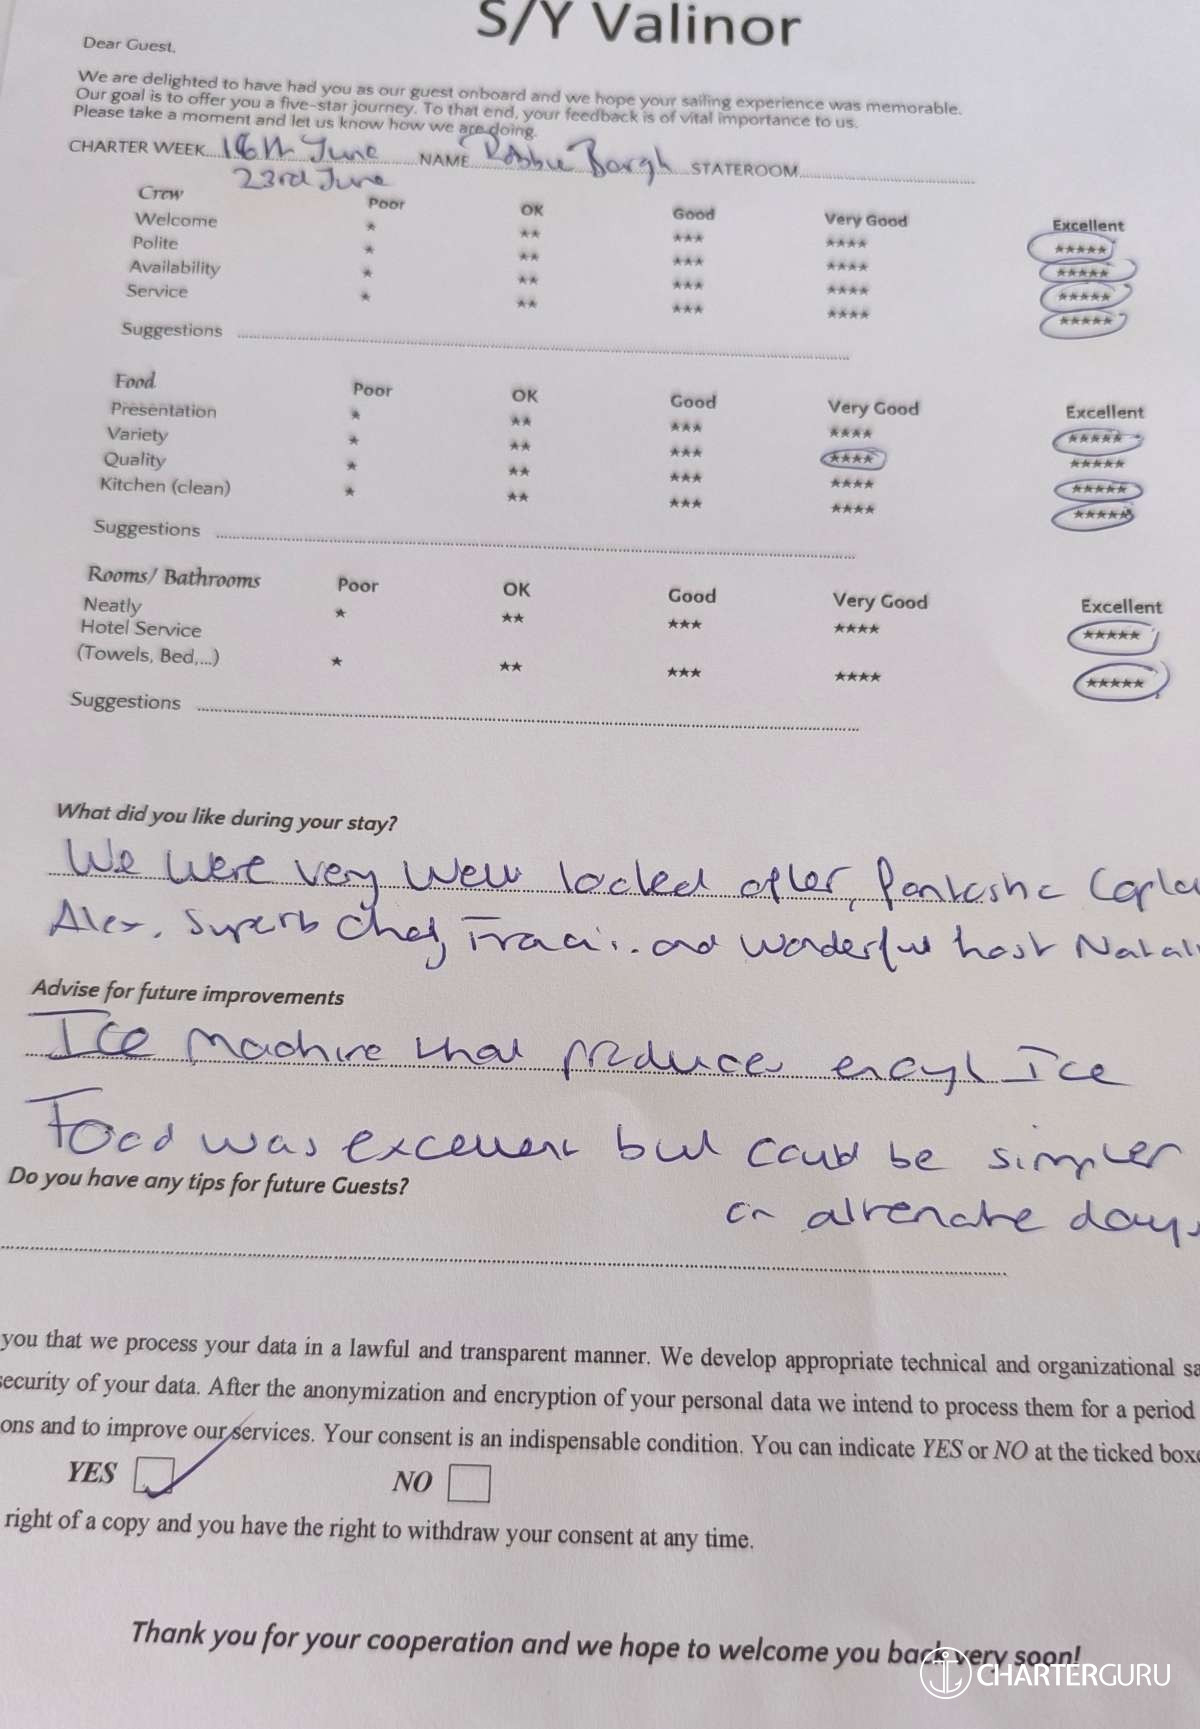 S/Y Valinor
Dear Guest,
We are delighted to have had you as our guest onboard and we hope your sailing experience was memorable.
Our goal is to offer you a five-star journey. To that end, your feedback is of vital importance to us.
Please take a moment and let us know how we are doing.
CHARTER WEEK 16th June NAME Robbie Bargh STATEROOM
23rd June
Crew Poor OK Good Very Good Excellent
Welcome * ** *** **** *****
Polite * ** *** **** *****
Availability * ** *** **** *****
Service * ** *** **** *****
Suggestions
Food Poor OK Good Very Good Excellent
Presentation * ** *** **** *****
Variety * ** *** **** *****
Quality * ** *** **** *****
Kitchen (clean) * ** *** **** *****
Suggestions
Rooms/ Bathrooms Poor OK Good Very Good Excellent
Neatly * ** *** **** *****
Hotel Service
(Towels, Bed,...) * ** *** **** *****
Suggestions
What did you like during your stay?
We were very well looked after, fantastic Capta
Alex, superb Chef, and wonderful host Natali
Advise for future improvements
Ice machine that produces Ice
Food was excellent but could be simpler
on alternate days
Do you have any tips for future Guests?
you that we process your data in a lawful and transparent manner. We develop appropriate technical and organizational sa
security of your data. After the anonymization and encryption of your personal data we intend to process them for a period
ons and to improve our services. Your consent is an indispensable condition. You can indicate YES or NO at the ticked boxe
YES NO
right of a copy and you have the right to withdraw your consent at any time.
Thank you for your cooperation and we hope to welcome you back very soon!
CHARTERGURU